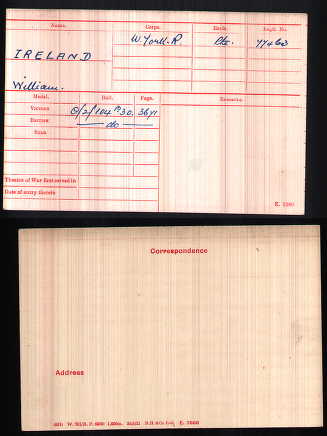 Name. Corps. Rank. Regtl. No.
IRELAND W. York. R. Pte. 77463
William.
Medal. Roll. Page. Remarks.
Victory O/2/104 B30. 3671
British do
Star
Theatre of War first served in
Date of entry therein
K. 1380
Correspondence
Address